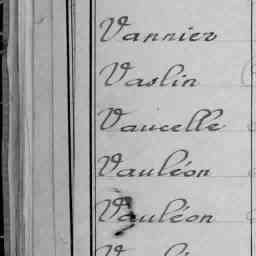 Vannier
Vaslin
Vaucelle
Vauléon
Vauléon